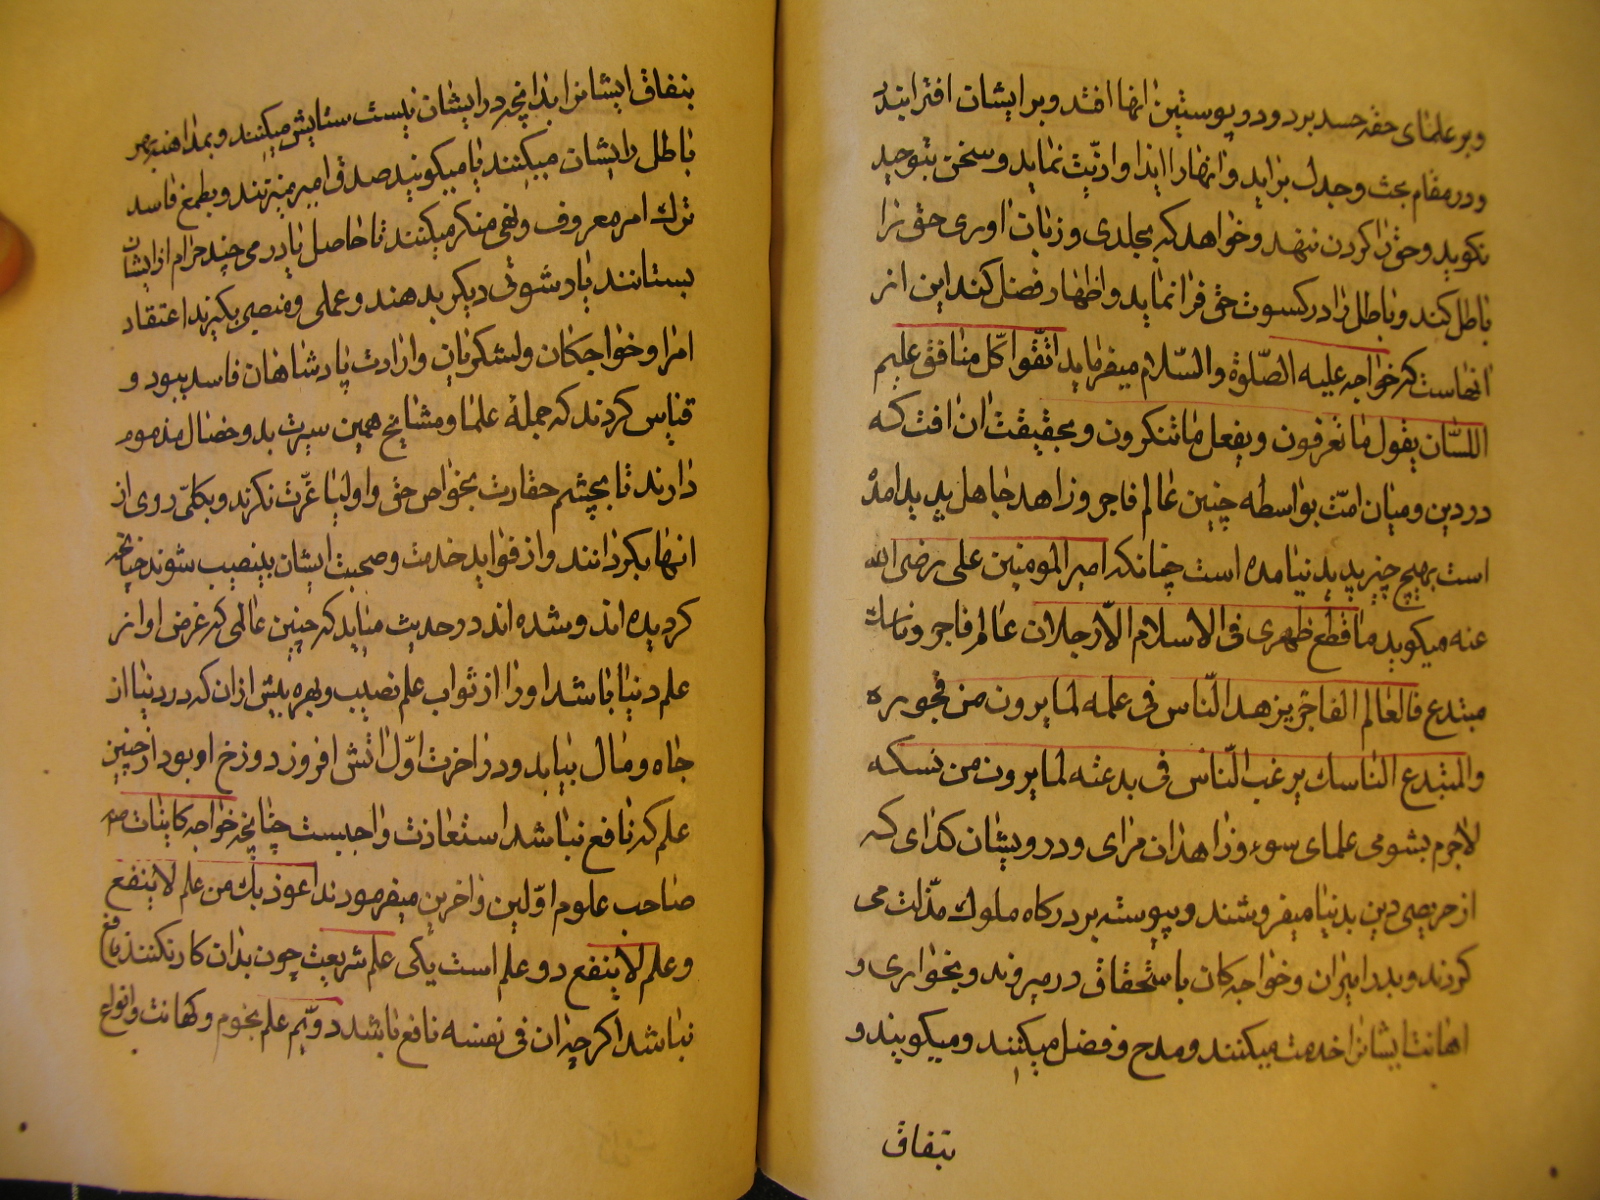 و بر علمای حقه حسد برد و در پوستین انها افتد و بر ایشان افترا بندد
و در مقام بحث و جدل براید و انها را ایذا و اذیت نماید و سخن بتوحید
نکوید و حق را کردن ننهد و خواهد که بجلدی و زبان اوری حق را
باطل کند و باطل را در کسوت حق فرا نماید و اظهار فضل کند این از
انهاست که خواجه علیه الصّلوة والسّلام میفرماید اتّقوا کلّ منافق علیم
اللسّان یقول ما تعرفون و یفعل ما تنکرون و بحقیقت ان افت که
در دین و میان امّت بواسطه چنین عالم فاجر و زاهد جاهل پدید امده
است بهیچ چیز پدید نیامده است چنانکه امیر المومنین علی رضی الله
عنه میکوید ما قطع ظهری فی الاسلام الّا رجلان عالم فاجر و ناسك
مبتدع فالعالم الفاجر یزهد النّاس فی علمه لما یرون من فجوره
والمبتدع الناسك یرغب النّاس فی بدعته لما یرون من نسکه
لاجرم بشومی علمای سوء و زاهدان مرای و درویشان کدای که
از حریصی دین بدنیا میفروشند و پیوسته بر درکاه ملوك مذّلت می
کردند و بدر امیران و خواجه کان باستحقاق در میروند و بخواری و
اهانت ایشانرا خدمت میکنند و مدح و فضل میکنند و میکویند و
بنفاق
بنفاق ایشانرا بدانچه در ایشان نیست ستایش میکنند و بمداهنه
باطل ایشان میکنند یا میکویند صدق امیر میزنند و بطمع فاسد
ترك امر معروف و نهی منکر میکنند تا حاصل یا درمی چند حرام از ایشان
بستانند یا رشوتی دیکر بدهند و عملی و منصبی بکیرند اعتقاد
امرا و خواجکان و لشکریان و ارادت پادشاهان فاسد ببود و
قیاس کردند که جملهٔ علما و مشایخ همین سیرت بد و خصال مذموم
دارند تا بچشم حقارت بخواص حق و اولیا عزّت نکرند و بکلّی روی از
انها بکردانند و از فواید خدمت و صحبت ایشان بینصیب شوند چنانچه
کردیده اند و شده اند در حدیث میاید که چنین عالمی که غرض او از
علم دنیا باشد او را از ثواب علم نصیب و بهره بیش از ان که در دنیا از
جاه و مال بیابد و در اخرت اوّل اتش افروز دوزخ او بود از چنین
علم که نافع نباشد استعاذت واجبست چنانچه خواجه کاینات صلم
صاحب علوم اوّلین و اخرین میفرمودند اعوذ بك من علم لا ینفع
و علم لا ینفع دو علم است یکی علم شریعت چون بدان کار نکنند نافع
نباشد اکر چه ان فی نفسه نافع باشد دویّم علم نجوم و کهانت و انواع